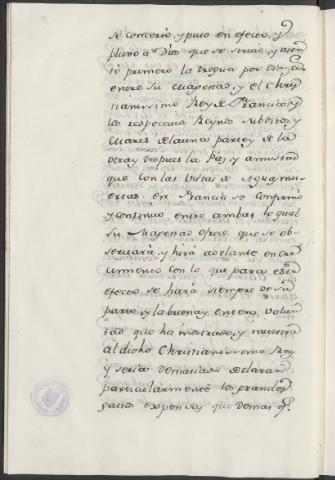 se concerto, y puso en efecto, y
plugo a Dios que se sirvio, y asen
to primero la tregua por
entre su Magestad, y el Chris
tianissimo Rey de Francia, y
los respectivos Reynos subditos, y
de la una parte, y de la
otra, y despues la Paz, y amistad
que con las Vistas de Aguas mu
ertas en Francia se confirmo
y continuo entre ambas lo qual
su Magestad ofrece que se ob
servará, y hirá adelante en
cumiento con lo que para este
efecto se hará siempre de su
parte, y la buena y entera volun
tad que ha mostrado, y muestra
al dicho Christianissimo Rey
y seria demasiado declarar
particularmente los grandes
gastos expensas que demas q.